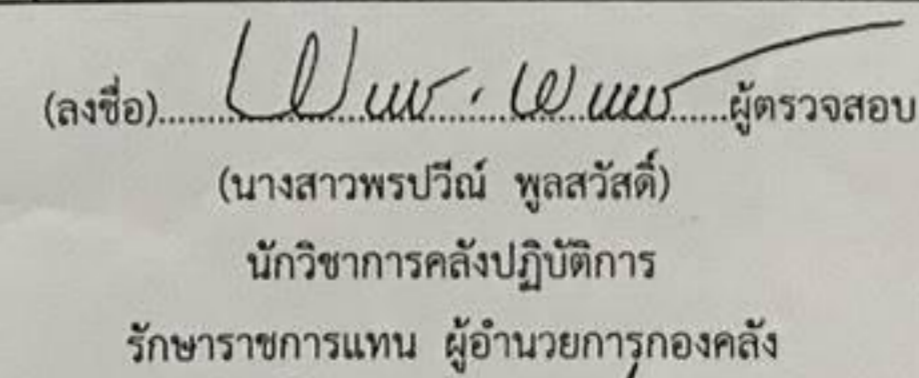 (ลงชื่อ)....................ผู้ตรวจสอบ
(นางสาวพรปวีณ์ พูลสวัสดิ์)
นักวิชาการคลังปฏิบัติการ
รักษาราชการแทน ผู้อำนวยการกองคลัง